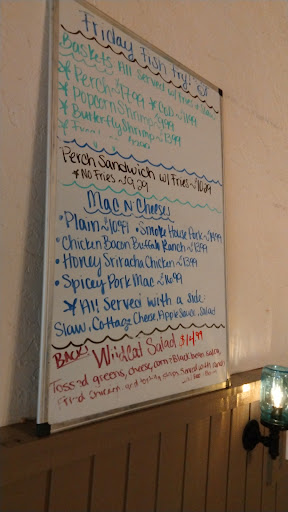 Friday Fish Fry!
Baskets All served w/ Fries & Slaw
* Perch ~ 17.99 * Cod ~ 11.99
* Popcorn Shrimp ~ 9.99
* Butterfly Shrimp ~ 13.99
Perch Sandwich w/ Fries ~ 10.99
* No Fries ~ 9.29
Mac N Cheeses
• Plain ~ 10.99 • Smoke House Pork ~ 14.99
• Chicken Bacon Buffalo Ranch ~ 13.99
• Honey Sriracha Chicken ~ 13.99
• Spicy Pork Mac ~ 14.99
* All Served with a side
Slaw, Cottage Cheese, Apple Sauce, Salad
BACK! Wildcat Salad $14.99
Tossed greens, cheese, corn + Black bean salsa,
fried chicken and tortilla strips. Served with ranch